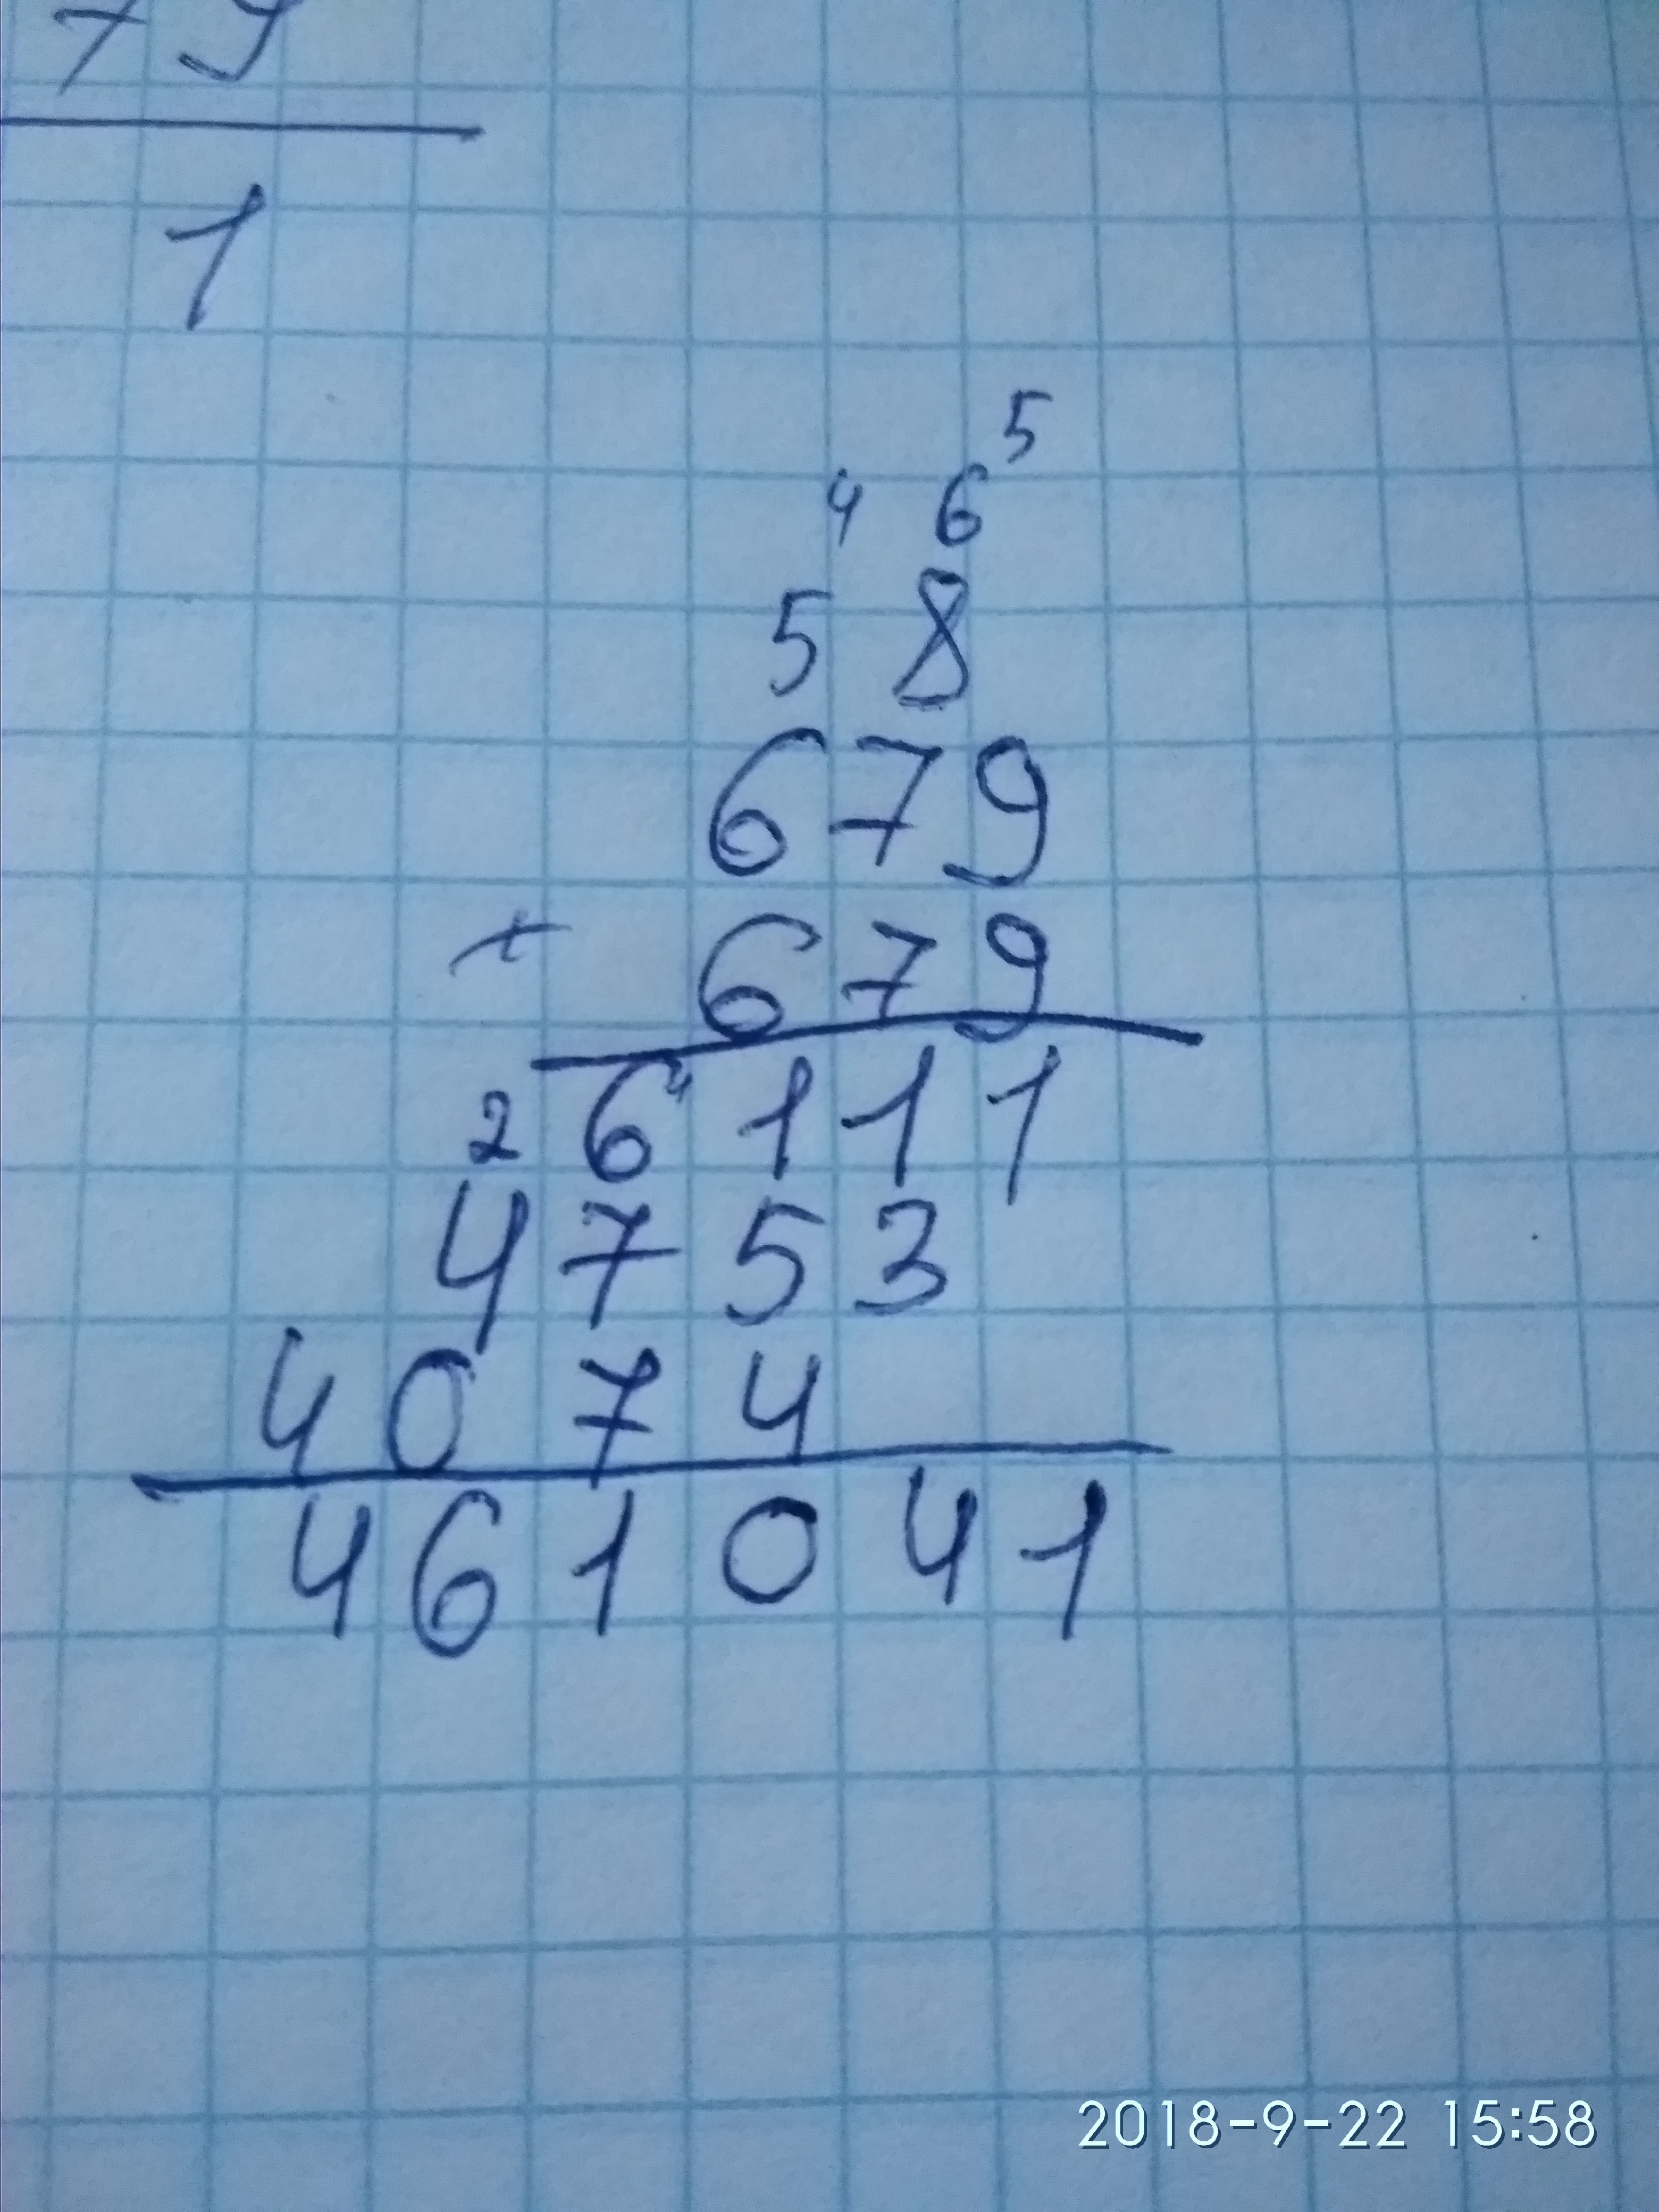 79
1
5
4 6
5 8
679
× 679
2 6 4 1 1 1
4753
4074
461041
2018-9-22 15:58